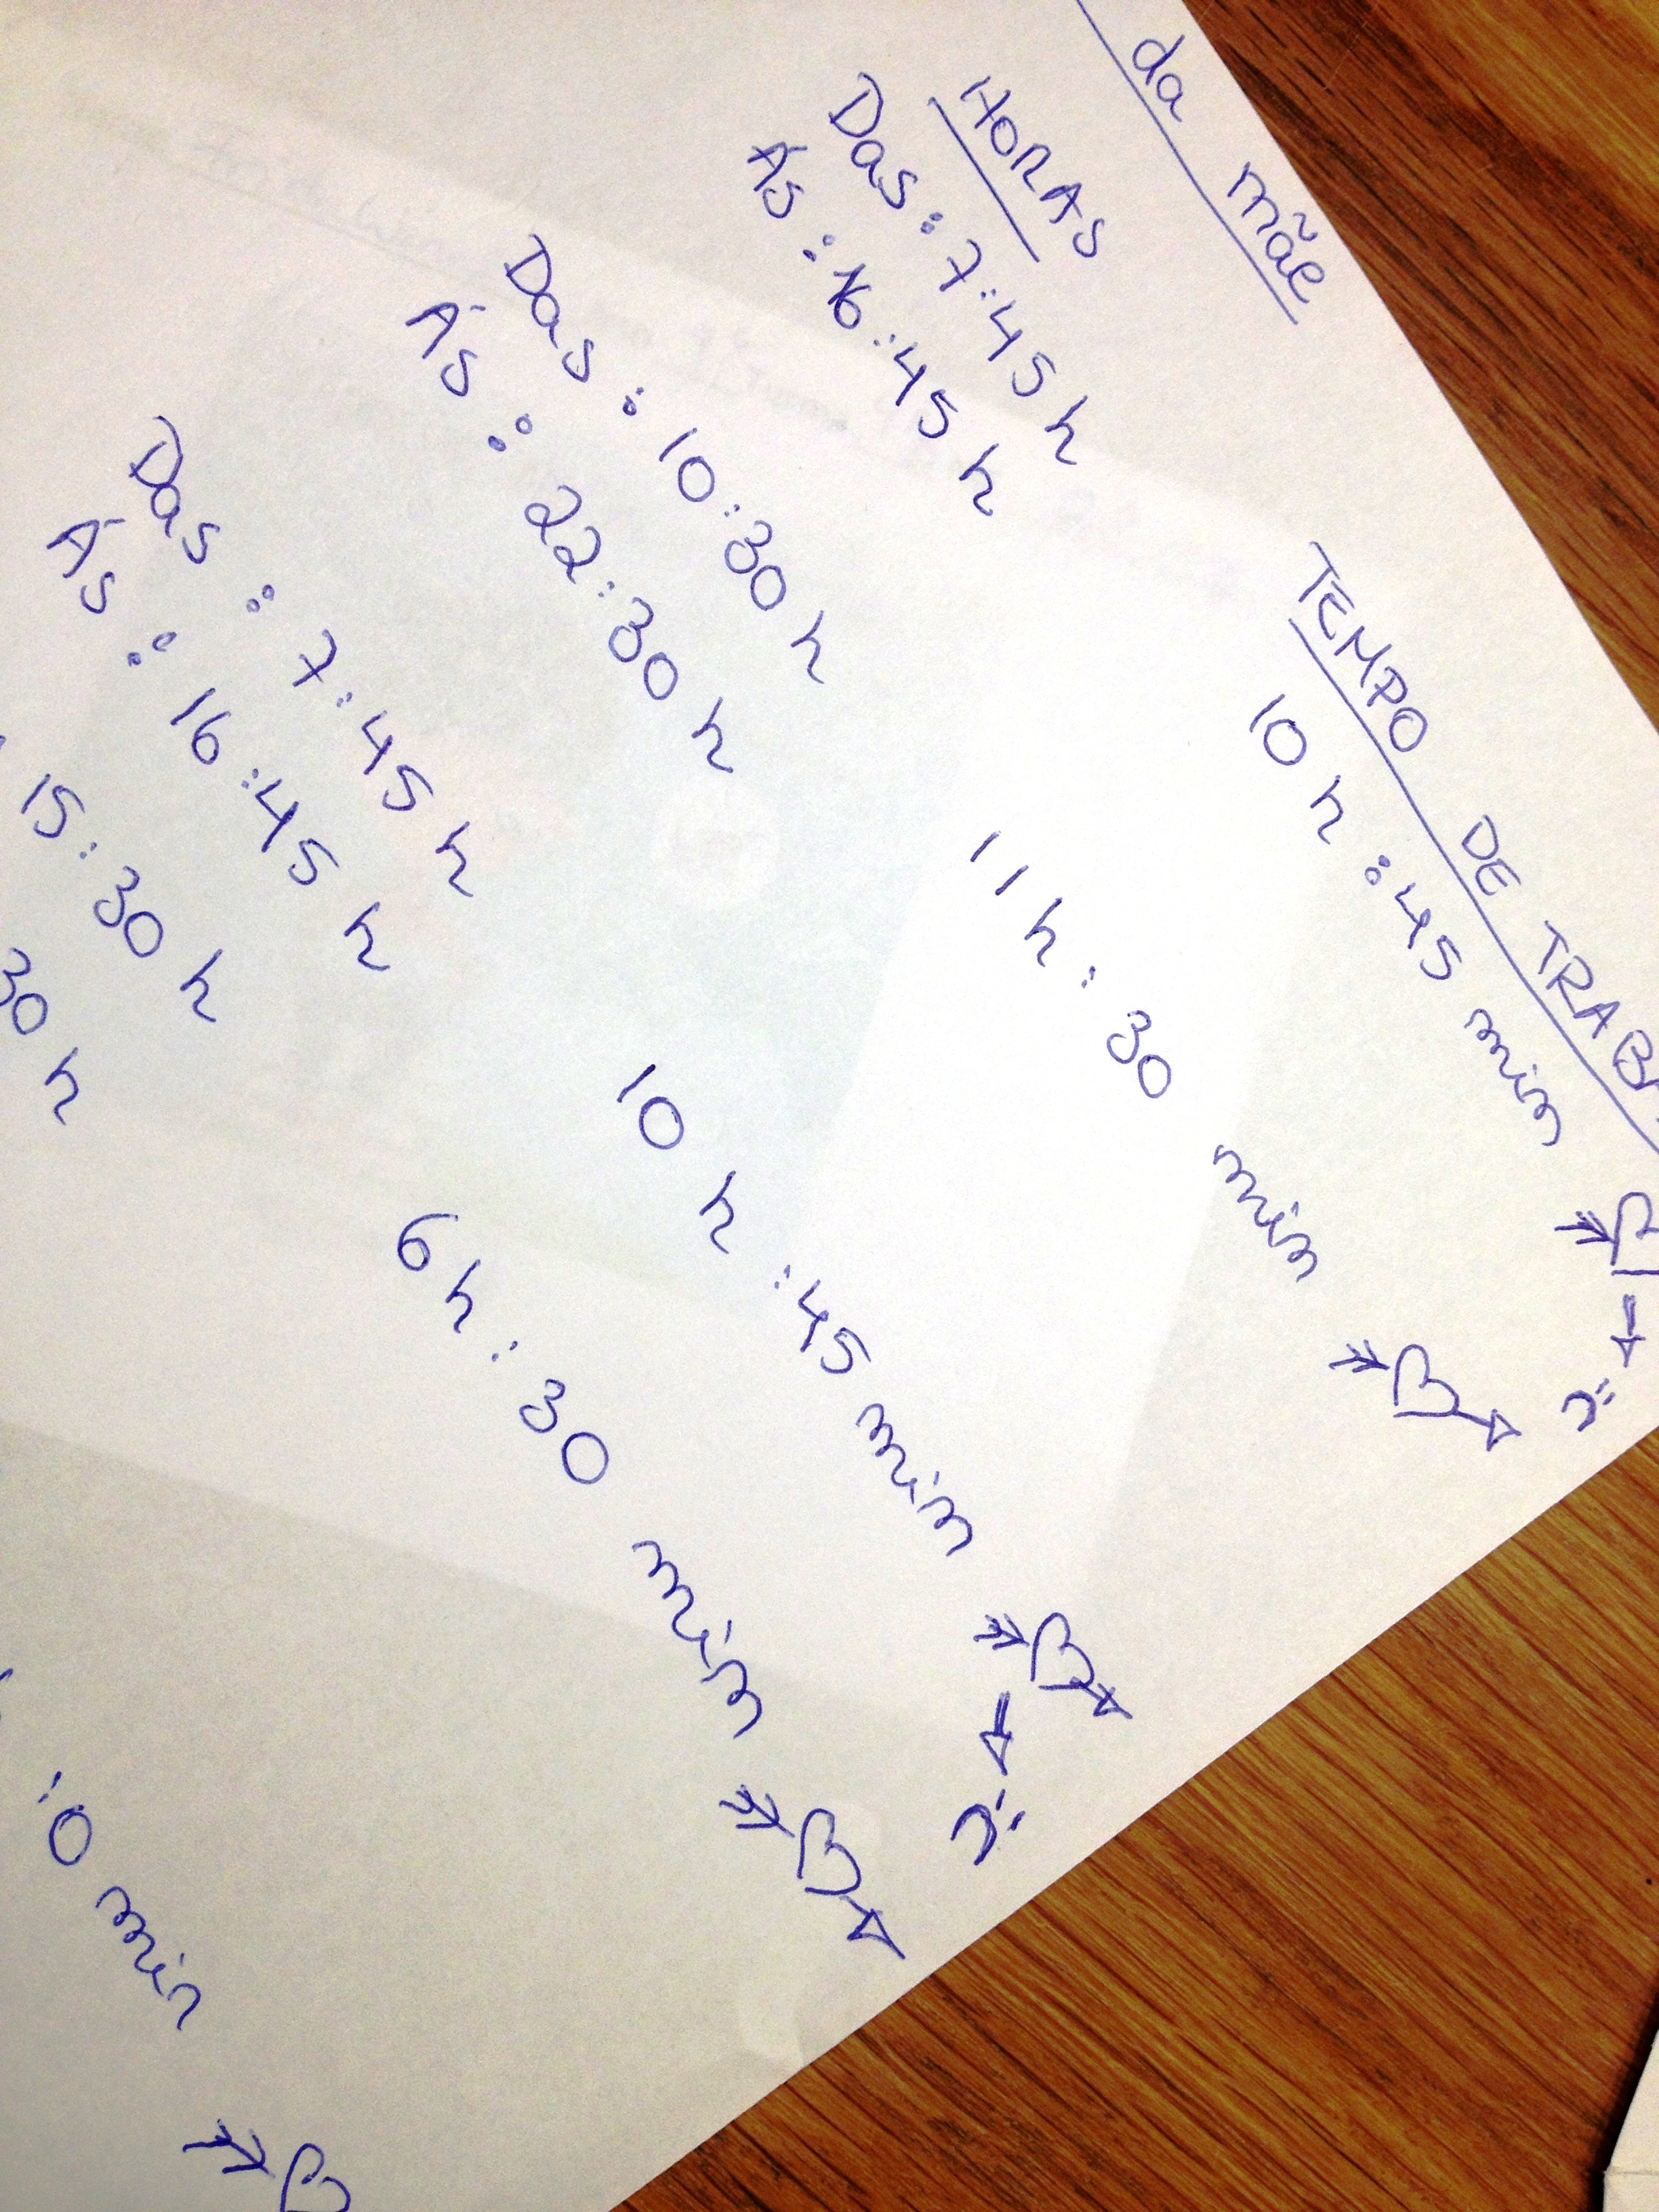 da mãe
HORAS TEMPO DE TRABA
Das : 7:45 h 10 h :45 min
Às : 16:45 h
Das : 10:30 h 11 h : 30 min
Às : 22:30 h
Das : 7:45 h 10 h :45 min
Às : 16:45 h
15:30 h 6 h : 30 min
30 h
:0 min